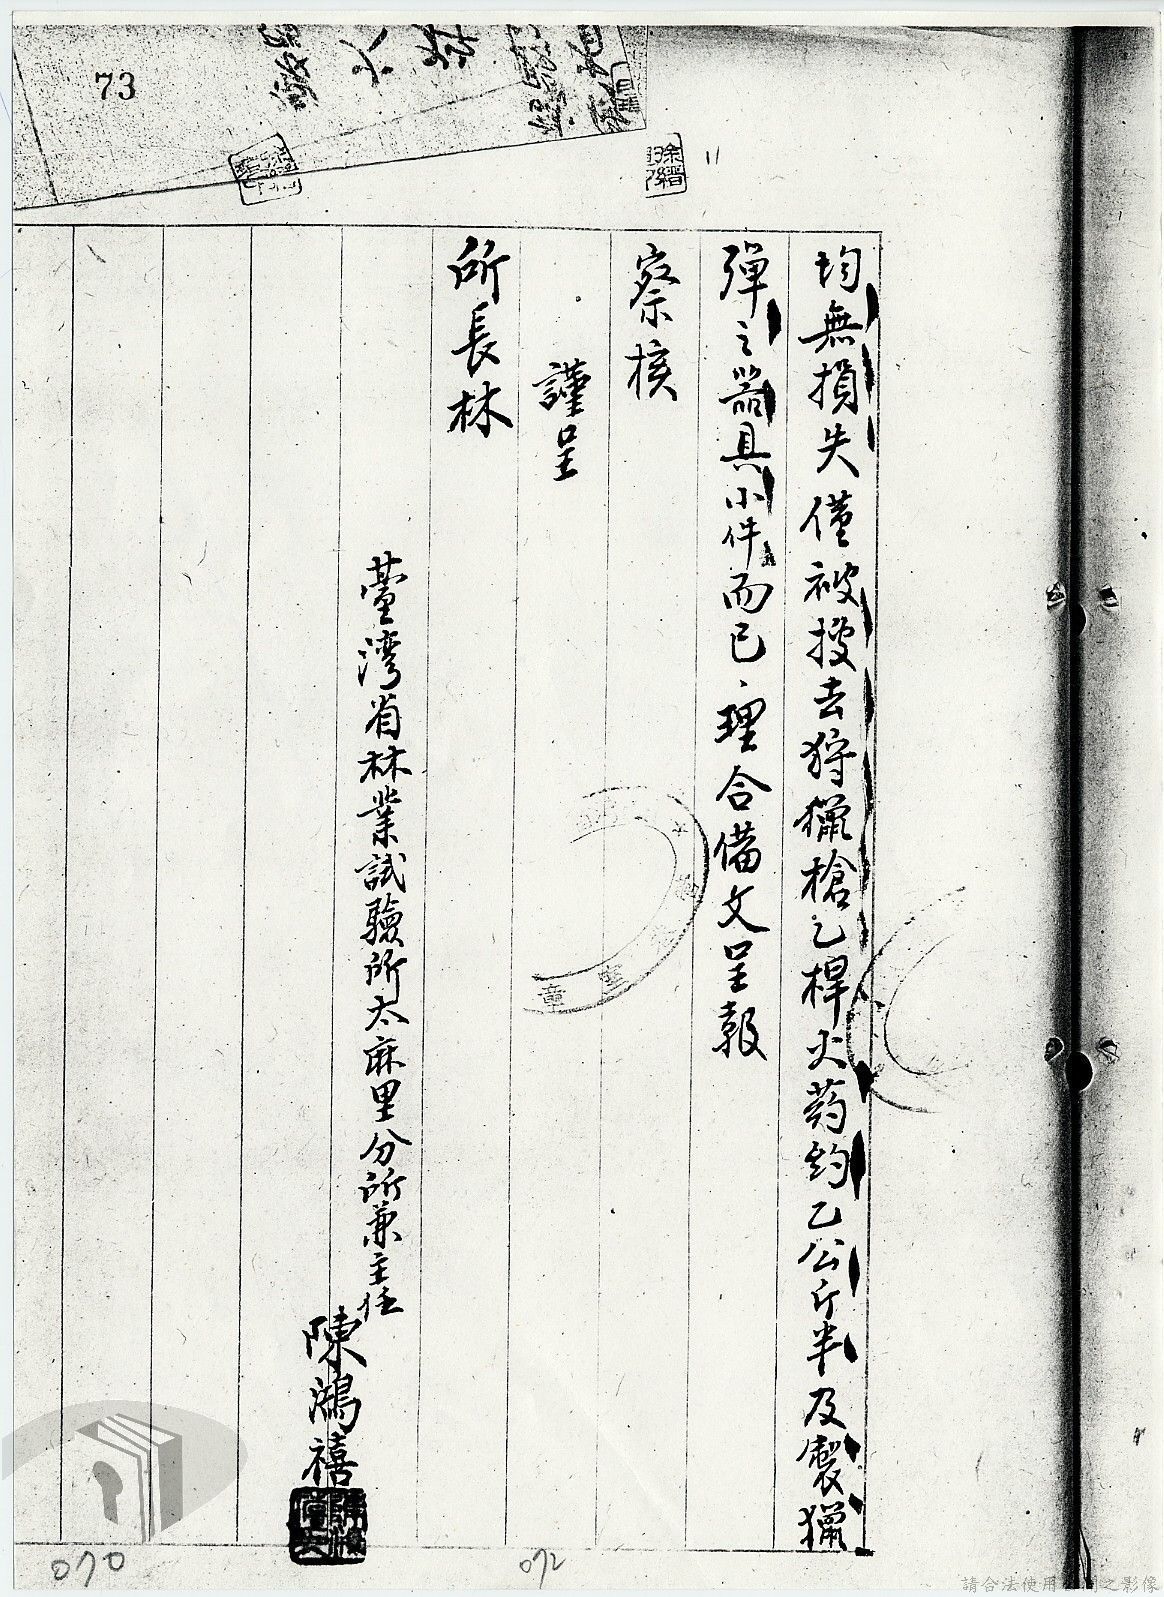 73
均無損失僅被搜去狩獵槍乙桿火药約乙公斤半及製獵
彈之器具小件而已、理合備文呈報
察核
謹呈
所長林
臺灣省林業試驗所太麻里分所兼主任
陳鴻禧
070
072
請合法使用
之影像